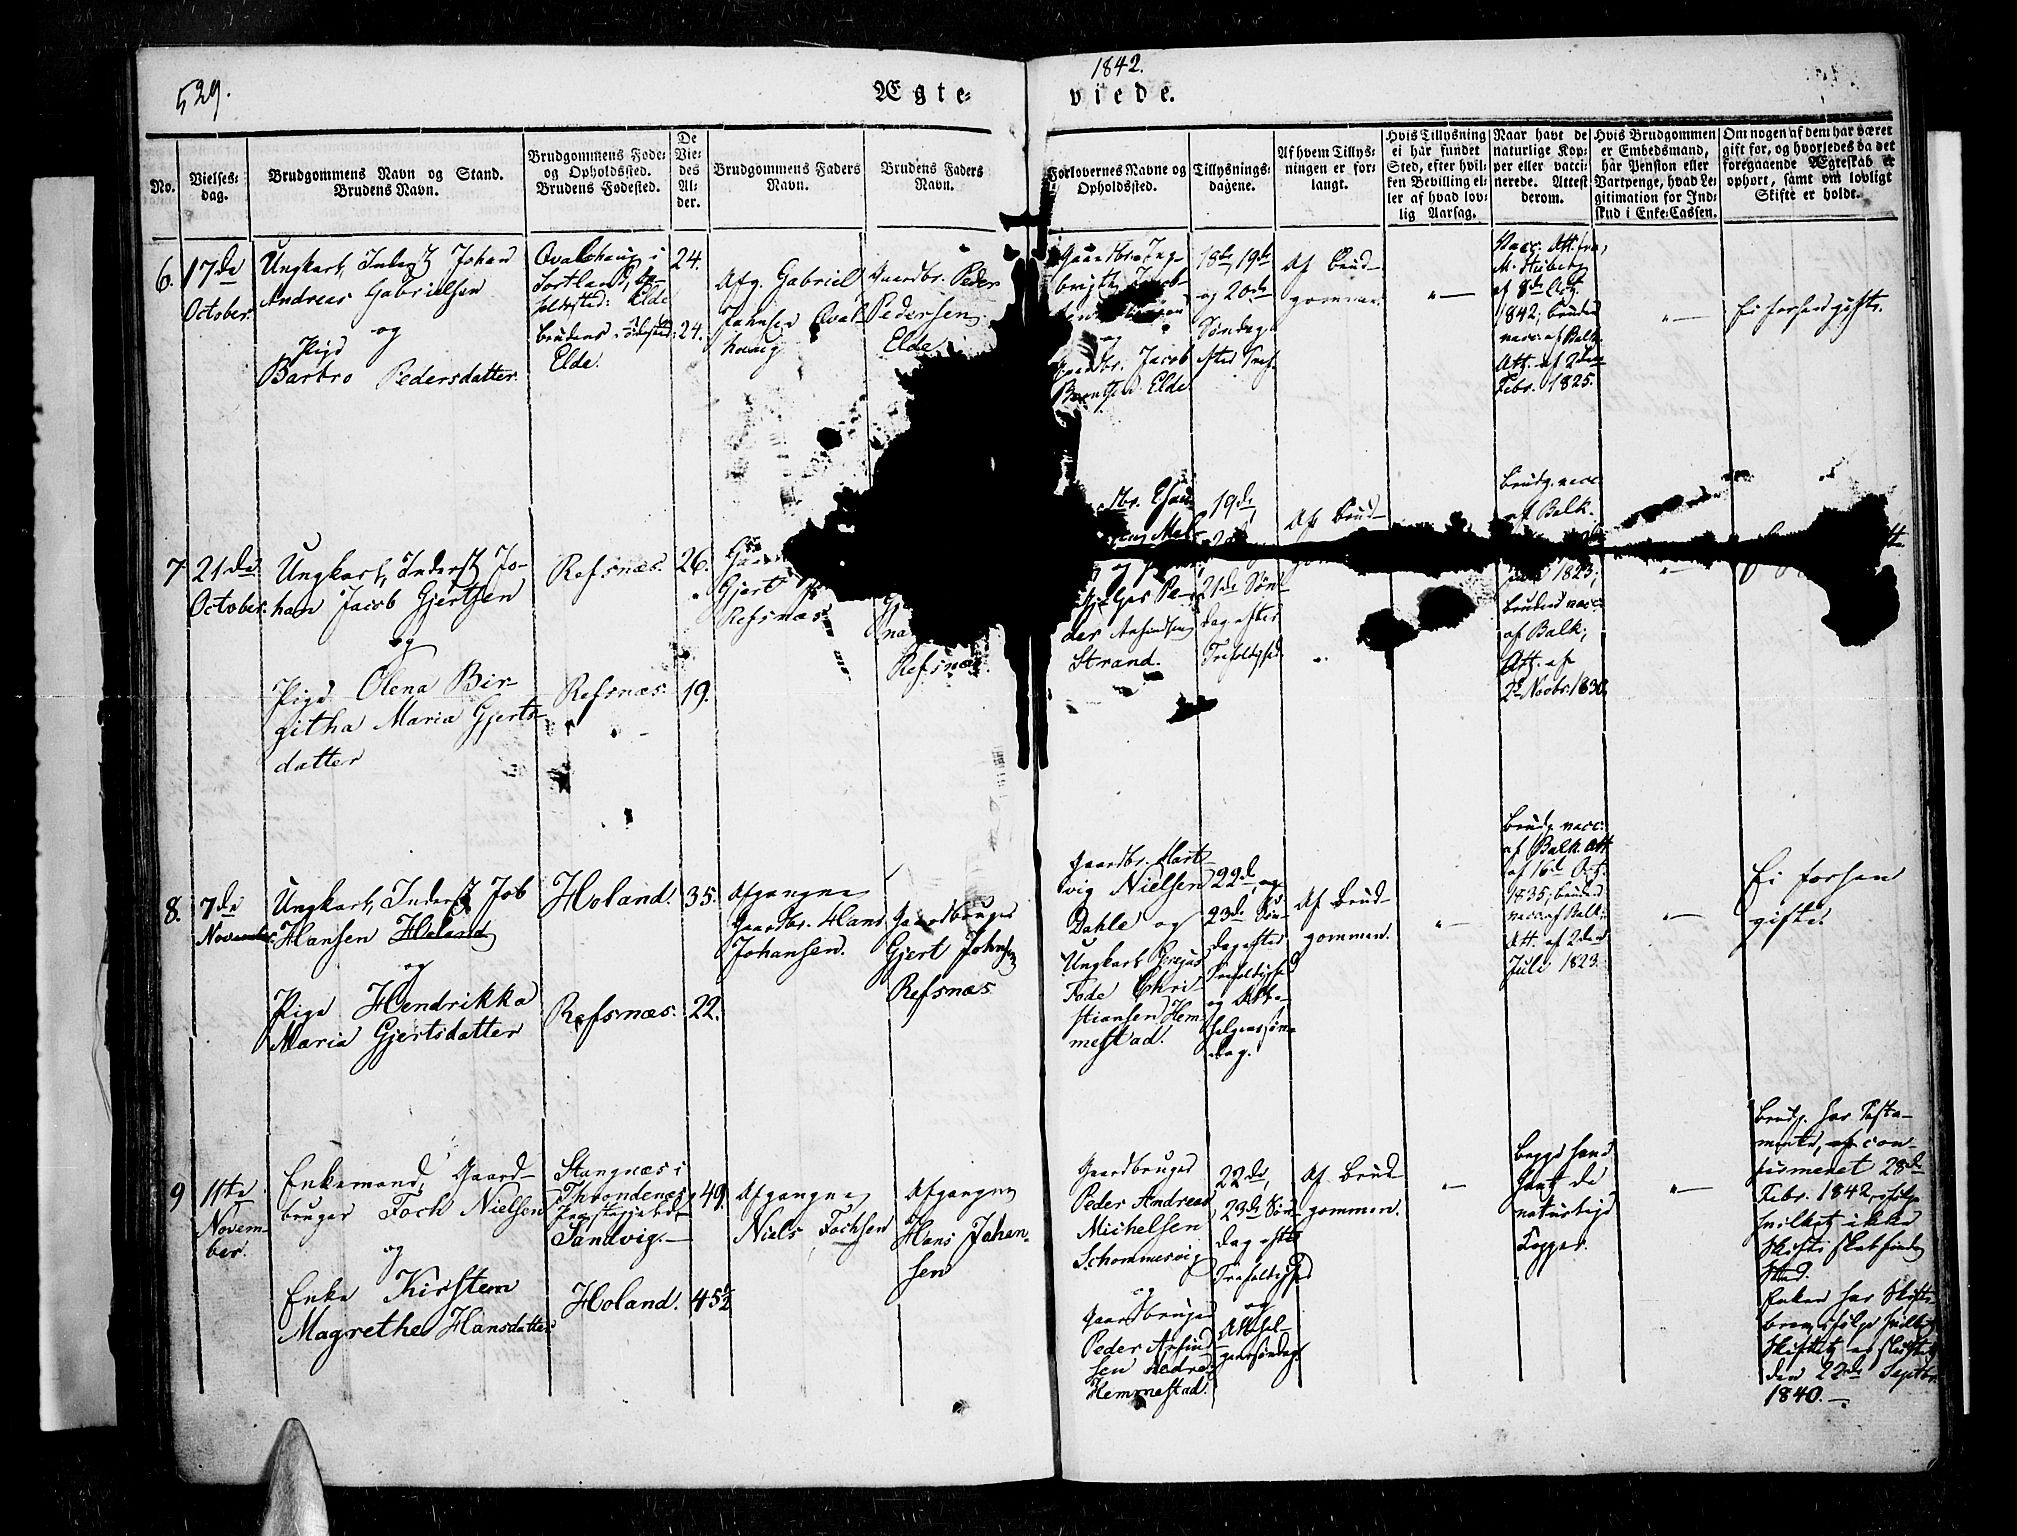 529.
1842.
Ægte-
viede.
No.
Vielses-
dag.
Brudgommens Navn og Stand.
Brudens Navn.
Brudgommens Føde-
og Opholdssted.
Brudens Fødested.
De
Vie-
des
Al-
der.
Brudgommens Faders
Navn.
Brudens Faders
Navn.
Forlovernes Navne og
Opholdssted.
Tillysnings-
dagene.
Af hvem Tillys-
ningen er for-
langt.
Hvis Tillysning
ei har fundet
Sted, efter hvil-
ken Bevilling el-
ler af hvad lov-
lig Aarsag.
Naar havt de
naturlige Kop-
per eller vacci-
nerede. Attest
derom.
Hvis Brudgommen
er Embedsmand,
har Pension eller
Vartpenge, hvad Le-
gitimation for Ind-
skud i Enke-Cassen.
Om nogen af dem har været
gift før, og hvorledes da det
foregaaende Ægteskab er
ophørt, samt om lovligt
Skifte er holdt.
6.
17de
October.
Ungkarl, Inderst Johan
Andreas Gabrielsen
og
Pige
Barbro Pedersdatter.
Sortland,
Elde
Brudens Fødested:
Elde.
24.
24.
Afg. Gabriel
Johnsen Qval-
houg
Gaardbr. Peder
Pedersen
Elde
Gaardbr.
og
Gaardbr. Jacob
Berntsen Elde
18de, 19de
og 20de
Søndag
efter Tref.
Af Brud-
gommen.
"
Vacc. Att. fra
af 8de Oct.
1842; bruden
vacc. af Balk.
Att. af 2den
Febr. 1825.
"
Ei forhen gifte.
7
21de
October.
Ungkarl, Inderst Jo-
han Jacob Gjertsen
og
Pige Olena Bir-
githa Maria Gjerts-
datter
Refsnæs.
Refsnæs.
26.
19.
Gjert
Refsnæs
Refsnæs.
og
der Arfindsen
Strand.
19de,
21de Søn-
dag efter
Trefoldighed.
Af Brud-
Brudg. vacc.
af Balk.
1823;
bruden vacc.
af Balk,
Att. af
2d Novbr. 1830.
"
8.
7de
November.
Ungkarl, Inderst Job
Hansen Holand
og
Pige Hendrikka
Maria Gjertsdatter
Holand.
Refsnæs.
35.
22.
Afgangne
Gaardbr. Hans
Johansen.
Gaardbruger
Gjert Johnsen
Refsnæs
Gaardbr. Hart-
vig Nielsen
Dahle og
Ungkarl
Tode Chri-
stiansen Hem-
mestad.
22de, og
23de Søn-
dag efter
Trefoldighed
og Alle-
helgenssøn-
dag.
Af Brud-
gommen.
"
Brudg. vacc.
af Balk. Att.
af 16de Oct.
1835; bruden
vacc. af Balk;
Att. af 2den
Juli 1823.
"
Ei forhen
gifte.
9
11te
Novem-
ber.
Enkemand, Gaard-
bruger Foch Nielsen
og
Enke Kirstem
Magrethe Hansdatter
Stangnæs i
Throndenæs
Sandvig.
Holand.
49.
45½
Afgangne
Niels Fochsen
Afgangne
Hans Johan-
sen
Gaardbruger
Peder Andreas
Michelsen
Schommesvig
og
Gaardbruger
Peder Arfind-
sen nedre
Hemmestad.
22de,
23de Søn-
dag efter
Trefoldighed
og
Allehel-
genssøndag.
Af Brud-
gommen.
"
Begge have
havt de
naturlige
Kopper.
"
Brudg. har Testa-
mente, con-
firmeret 28de
Febr. 1842, ifølge
hvilket ikke
Skifte skal finde
Sted.
Enken har Skifte-
brev, ifølge hvilket
Skiftet er sluttet
den 22de Septbr.
1840.